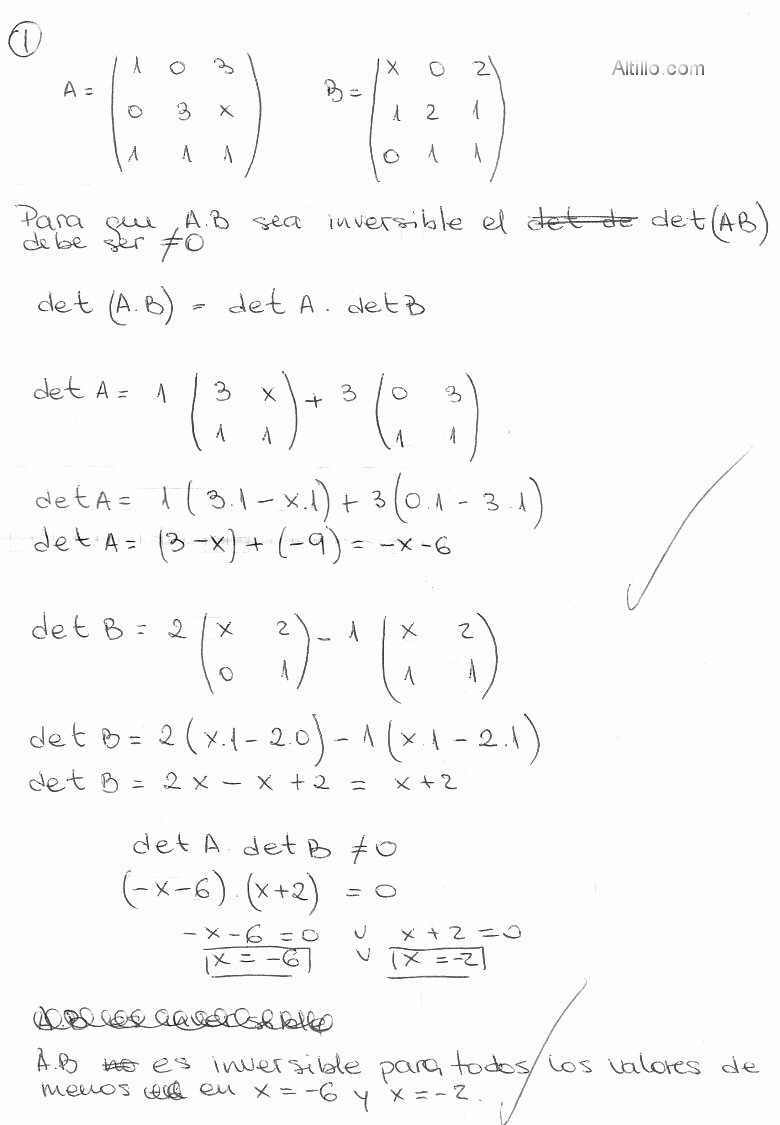 1
Altillo.com
A = ( 1 0 3 B = ( x 0 2
0 3 x 1 2 1
1 1 1 ) 0 1 1 )
Para que A.B sea inversible el det de det(AB)
debe ser ≠0
det (A.B) = det A . det B
det A = 1 ( 3 x + 3 ( 0 3
1 1 ) 1 1 )
det A = 1 ( 3.1 - x.1) + 3(0.1 - 3.1)
det A = (3-x) + (-9) = -x-6
det B = 2 ( x 2 - 1 ( x 2
0 1 ) 1 1 )
det B = 2(x.1 - 2.0) - 1(x.1 - 2.1)
det B = 2x - x + 2 = x+2
det A . det B ≠0
(-x-6).(x+2) = 0
-x-6=0 ∨ x+2=0
x=-6 ∨ x=-2
A.B no es inversible para todos los valores de
menos en x=-6 y x=-2.